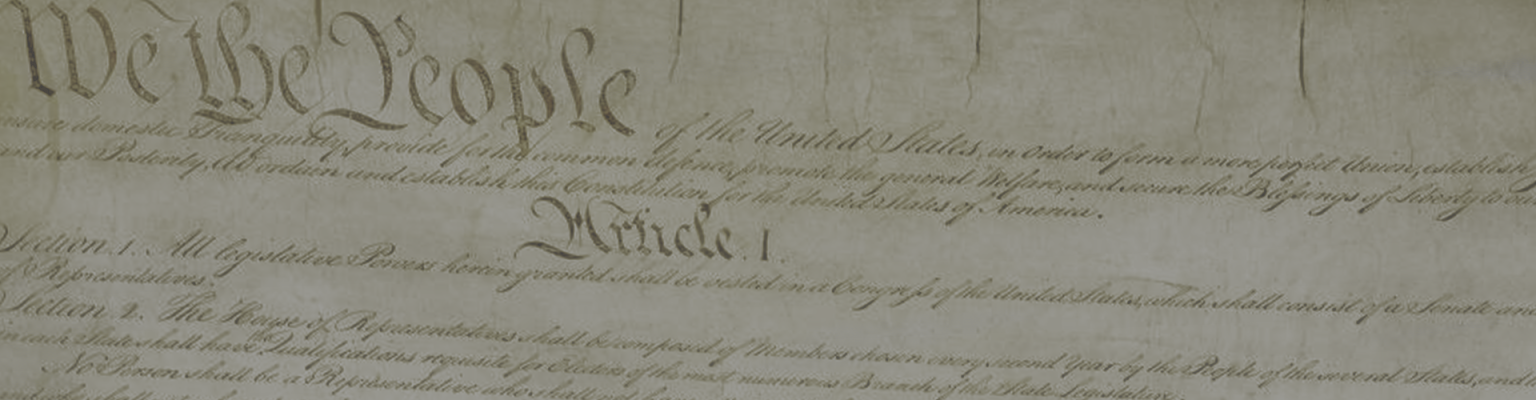 We the People of the United States, in Order to form a more perfect Union, establish
insure domestic Tranquility, provide for the common defence, promote the general Welfare, and secure the Blessings of Liberty to our
and our Posterity, do ordain and establish this Constitution for the United States of America.
Article. I.
Section. 1. All legislative Powers herein granted shall be vested in a Congress of the United States, which shall consist of a Senate and
of Representatives.
Section. 2. The House of Representatives shall be composed of Members chosen every second Year by the People of the several States, and
in each State shall have Qualifications requisite for Electors of the most numerous Branch of the State Legislature.
No Person shall be a Representative who shall not